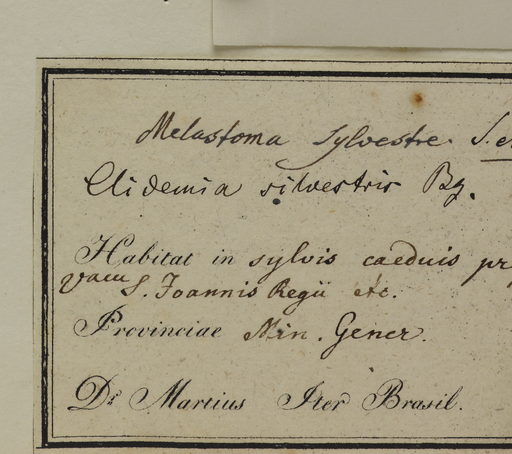 Melastoma sylvestre.
Clidemia silvestris Bg.
Habitat in sylvis caeduis
S. Joannis Regii etc.
Provinciae Min. Gener.
Dr. Martius Iter Brasil.